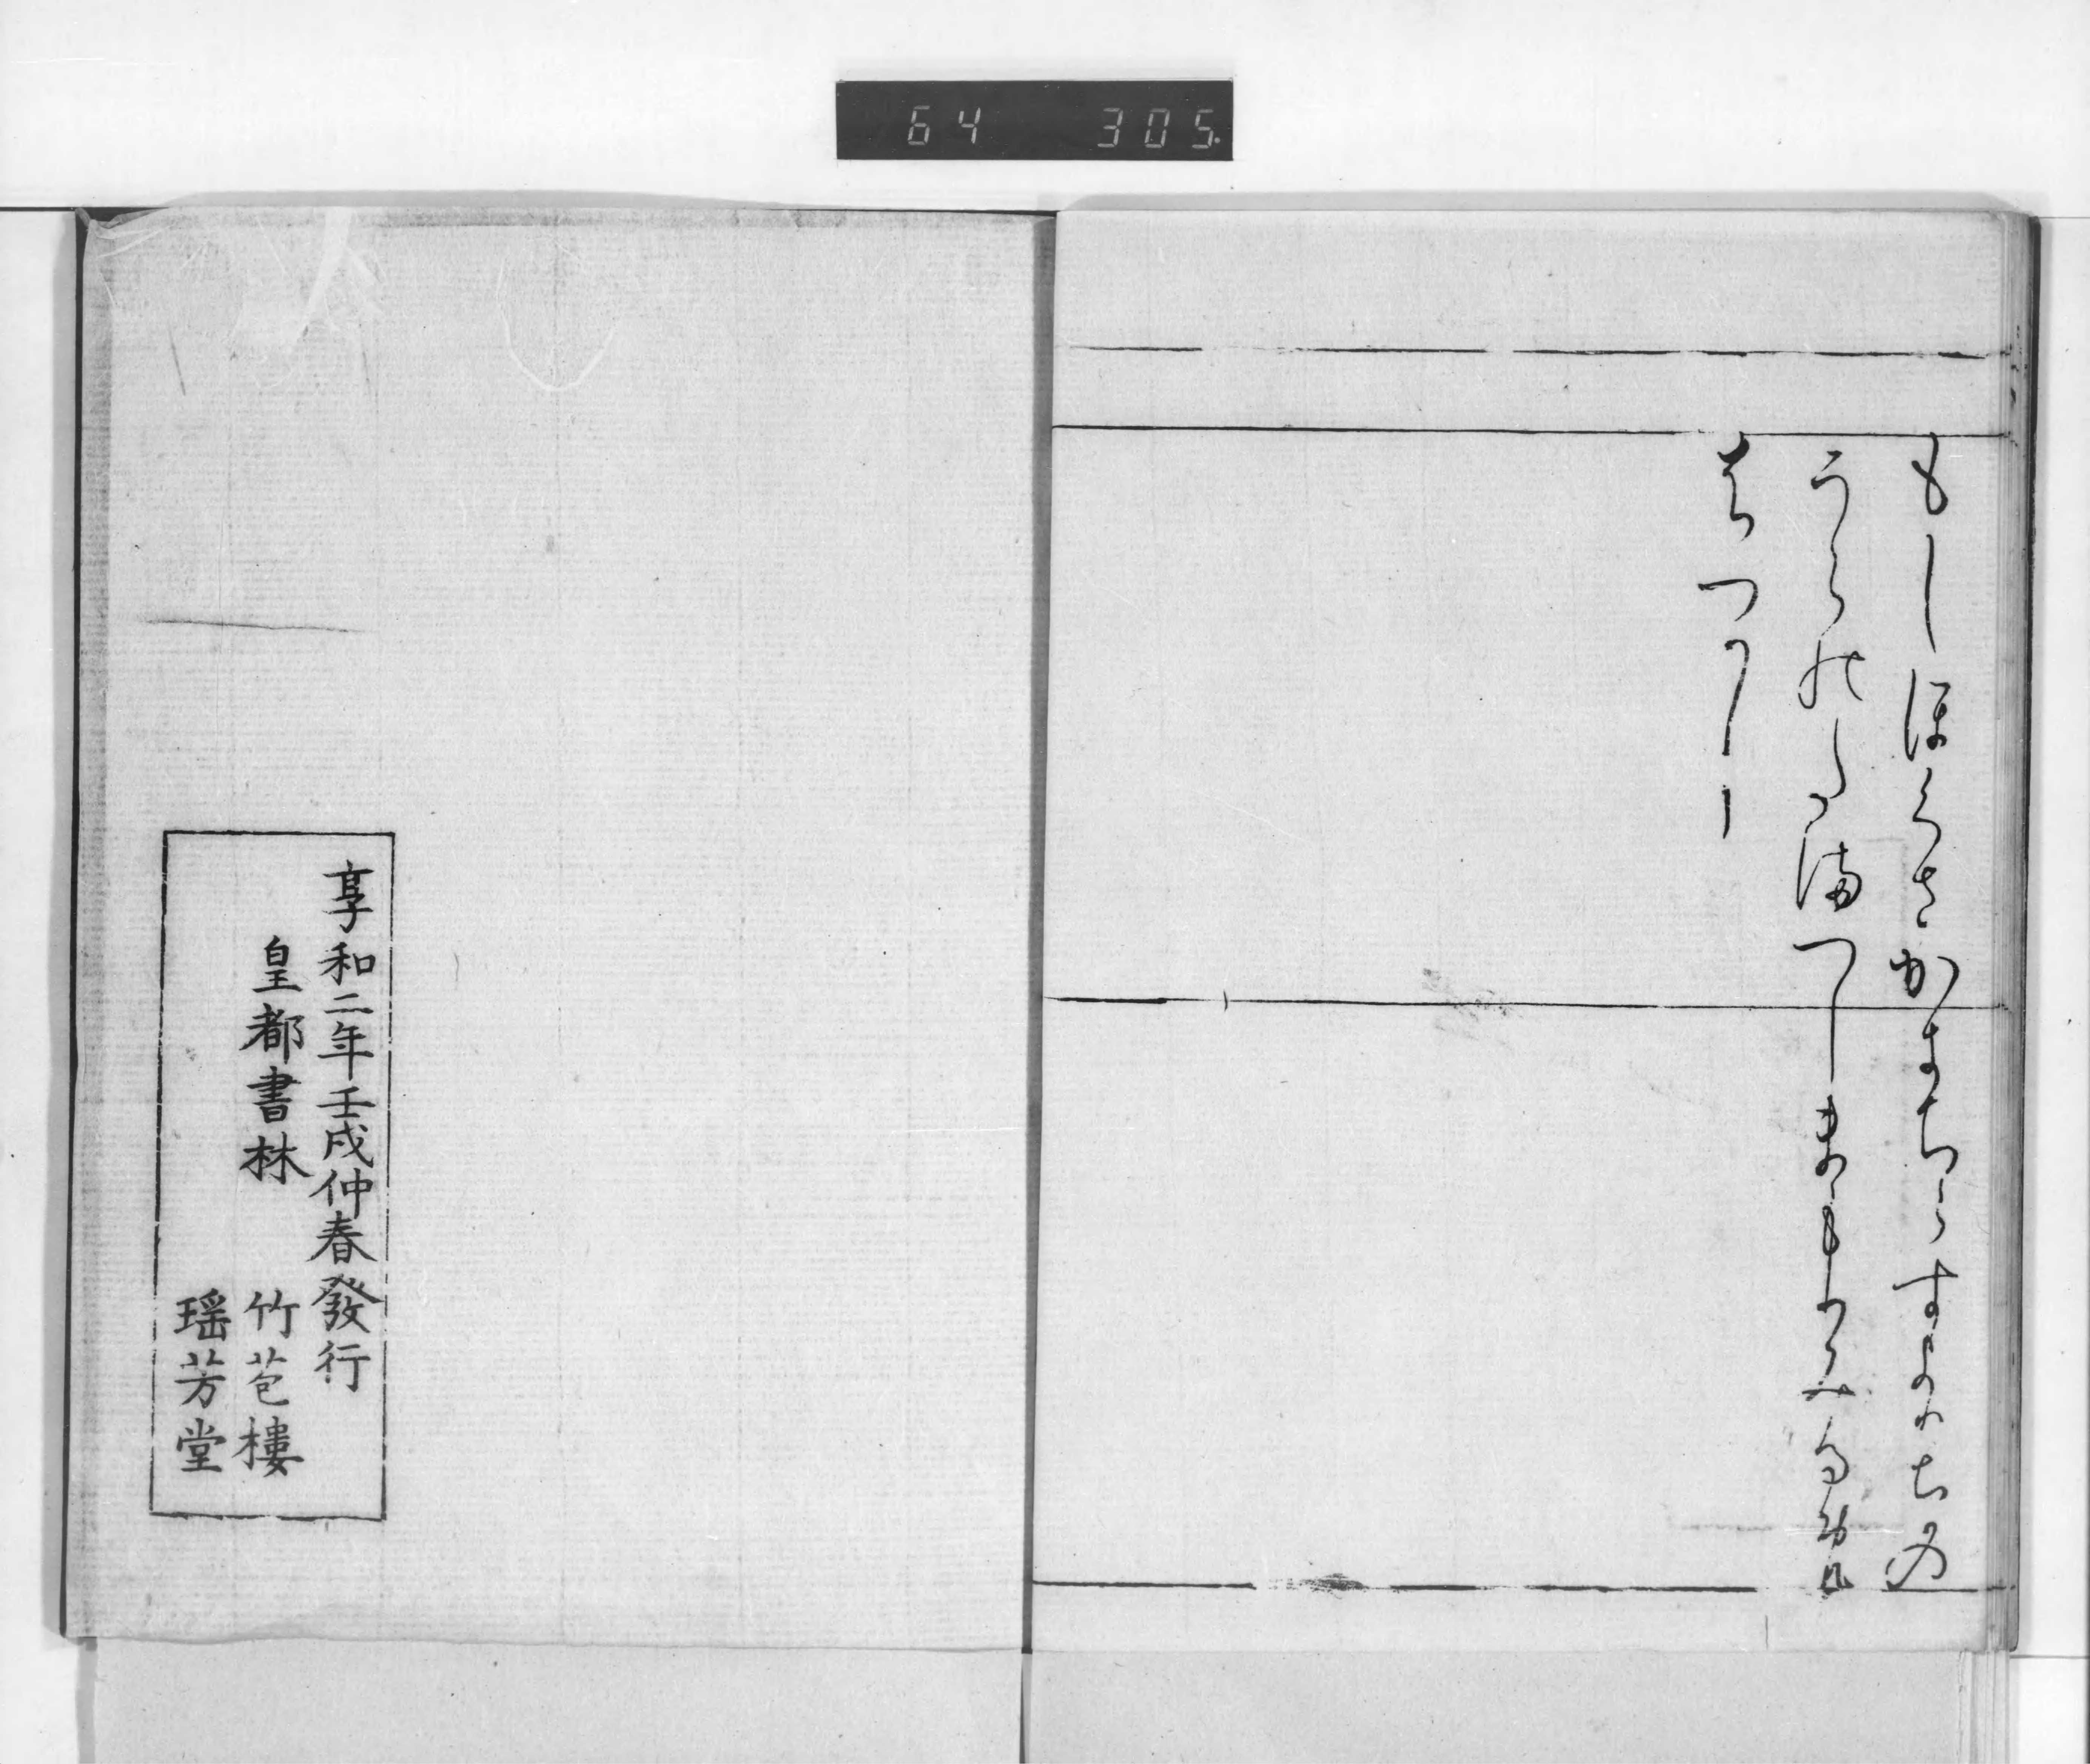 64 305
もしほくさかきちらすもわかの
うらのたまつしまもりかみるめ
はつかし
享和二年壬戌仲春發行
皇都書林 竹苞樓
瑶芳堂